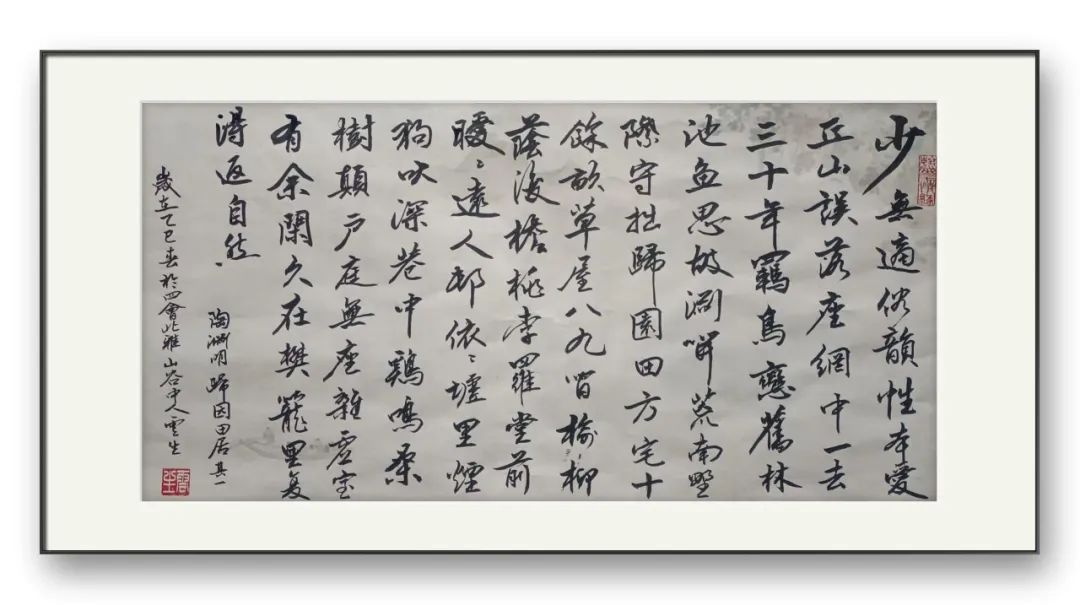 少無適俗韻性本愛
丘山誤落塵網中一去
三十年羈鳥戀舊林
池魚思故淵開荒南野
際守拙歸園田方宅十
餘畝草屋八九間榆柳
蔭後檐桃李羅堂前
曖〻遠人邨依〻墟里煙
狗吠深巷中鷄鳴桑
樹顛戶庭無塵雜虛室
有余閑久在樊籠里復
得返自然
陶淵明歸園田居其一
歲在乙巳春於四會北雅山谷中人雲生
雲生